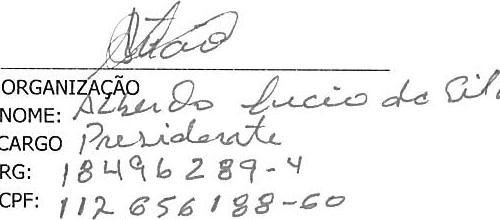 ORGANIZAÇÃO
NOME: Alberto Lucio da Sil
CARGO Presidente
RG: 18496289-4
CPF: 112 656 188-60